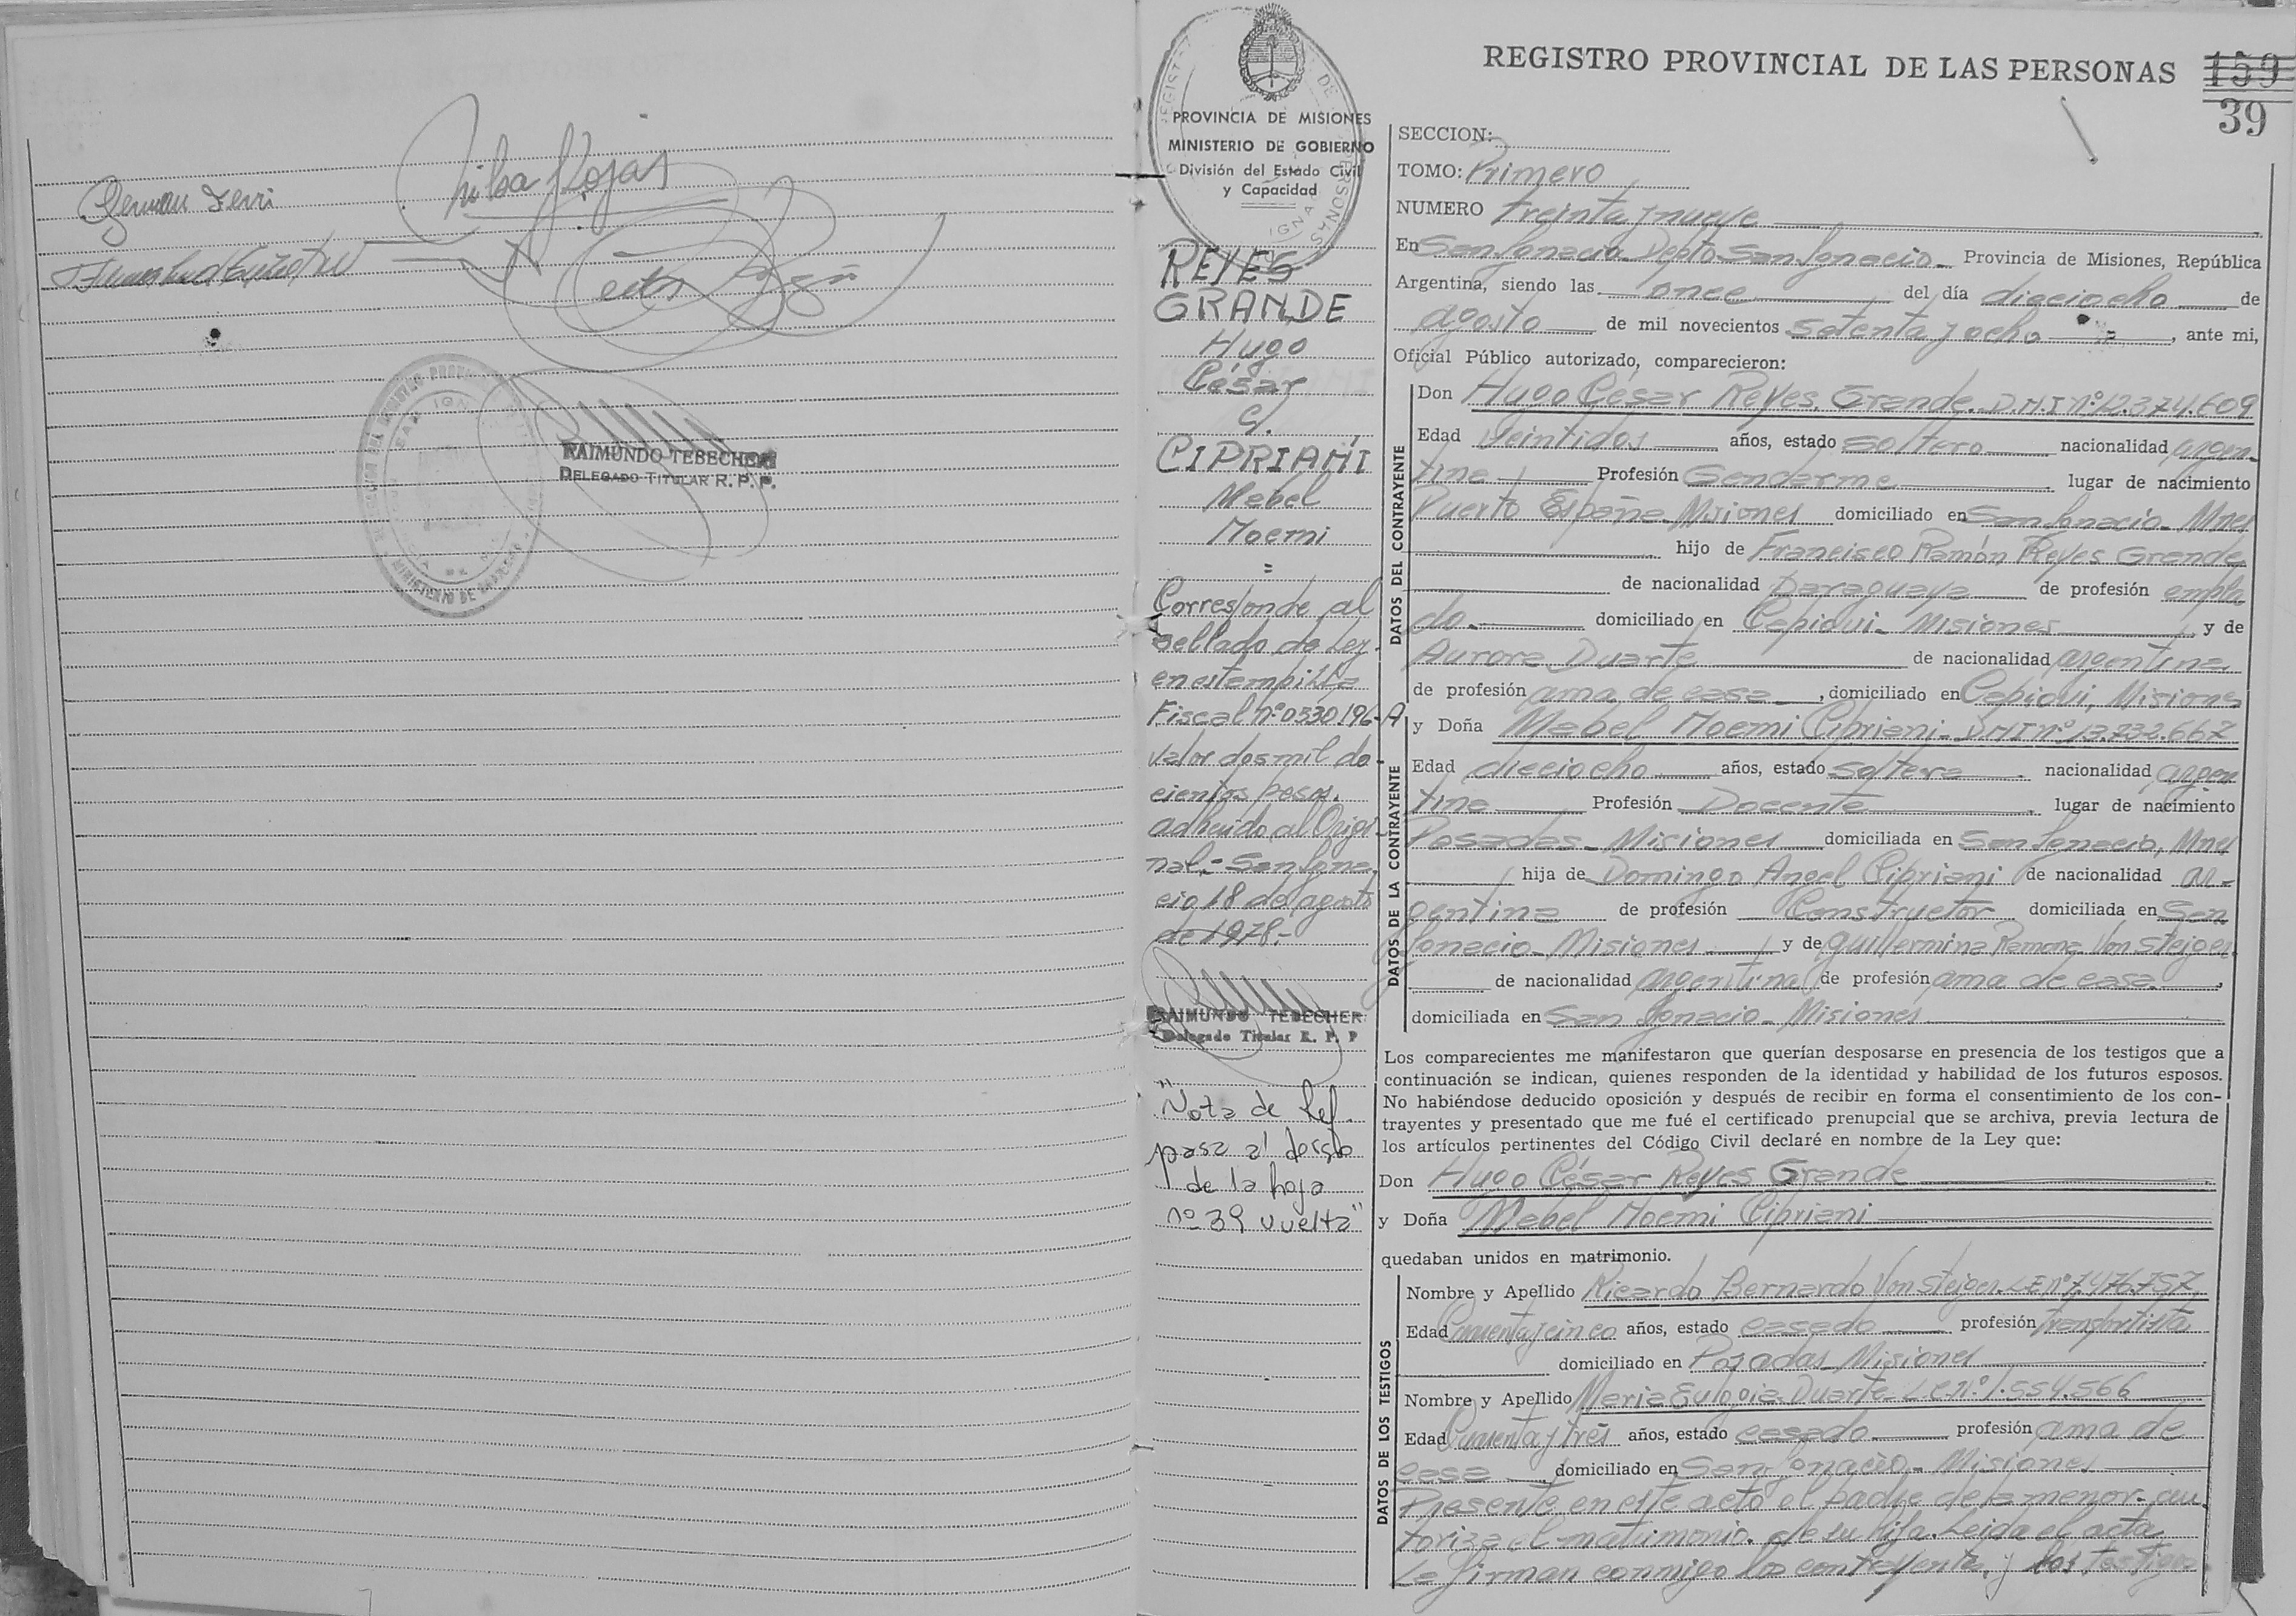 German
Nilsa Rojas
RAIMUNDO TEBECHER
DELEGADO TITULAR R. P. P.
PROVINCIA DE MISIONES
MINISTERIO DE GOBIERNO
División del Estado Civil
y Capacidad
REYES
GRANDE
Hugo
César
y.
CIPRIANI
Mabel
Noemi
=
Corresponde al
sellado de Ley
en estampilla
Fiscal nº 0530196-A
valor dos mil do
cientos pesos.
adherido al Origi
nal.- San Igna
cio 18 de agosto
de 1978.-
RAIMUNDO TEBECHER
Delegado Titular R. P. P
"Nota de Ref.
pasa al dorso
de la hoja
nº 39 vuelta"
REGISTRO PROVINCIAL DE LAS PERSONAS 159
39
SECCION:
TOMO: Primero
NUMERO Treinta y nueve
En San Ignacio Depto San Ignacio - Provincia de Misiones, República
Argentina, siendo las once del día dieciocho de
agosto de mil novecientos setenta y ocho =, ante mi,
Oficial Público autorizado, comparecieron:
DATOS DEL CONTRAYENTE
Don Hugo César Reyes Grande. D.N.I nº 12.374.609
Edad Veintidos años, estado soltero nacionalidad argen-
tina Profesión Gendarme lugar de nacimiento
Puerto España Misiones domiciliado en San Ignacio - Mnes
hijo de Francisco Ramón Reyes Grande
de nacionalidad paraguaya de profesión emplea
do. domiciliado en Capiovi - Misiones y de
Aurora Duarte de nacionalidad argentina
de profesión ama de casa, domiciliado en Capiovi, Misiones
DATOS DE LA CONTRAYENTE
y Doña Mabel Noemi Cipriani - D.N.I nº 13.732.667
Edad dieciocho años, estado soltera nacionalidad argen
tina Profesión Docente lugar de nacimiento
Posadas - Misiones domiciliada en San Ignacio, Mnes
hija de Domingo Angel Cipriani de nacionalidad ar-
gentina de profesión Constructor domiciliada en San
Ignacio - Misiones y de Guillermina Ramona Von Steiger
de nacionalidad argentina de profesión ama de casa,
domiciliada en San Ignacio - Misiones
Los comparecientes me manifestaron que querían desposarse en presencia de los testigos que a
continuación se indican, quienes responden de la identidad y habilidad de los futuros esposos.
No habiéndose deducido oposición y después de recibir en forma el consentimiento de los con-
trayentes y presentado que me fué el certificado prenupcial que se archiva, previa lectura de
los artículos pertinentes del Código Civil declaré en nombre de la Ley que:
Don Hugo César Reyes Grande
y Doña Mabel Noemi Cipriani
quedaban unidos en matrimonio.
DATOS DE LOS TESTIGOS
Nombre y Apellido Ricardo Bernardo Von Steiger. LE nº 7.476.757
Edad Cuarenta y cinco años, estado casado profesión transportista
domiciliado en Posadas - Misiones
Nombre y Apellido Maria Eulogia Duarte - LC nº 1.554.566
Edad Cuarenta y tres años, estado casado profesión ama de
casa domiciliado en San Ignacio - Misiones
Presente en este acto el padre de la menor - au
toriza el matrimonio de su hija. Leida el acta
La firman conmigo los contrayentes, y los testigos